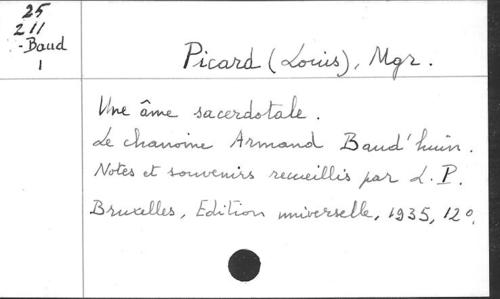 25
211
-Baud
1
Picard (Louis), Mgr.
Une âme sacerdotale.
Le chanoine Armand Baud'huin.
Notes et souvenirs recueillis par L. P.
Bruxelles, Edition universelle, 1935, 12º.